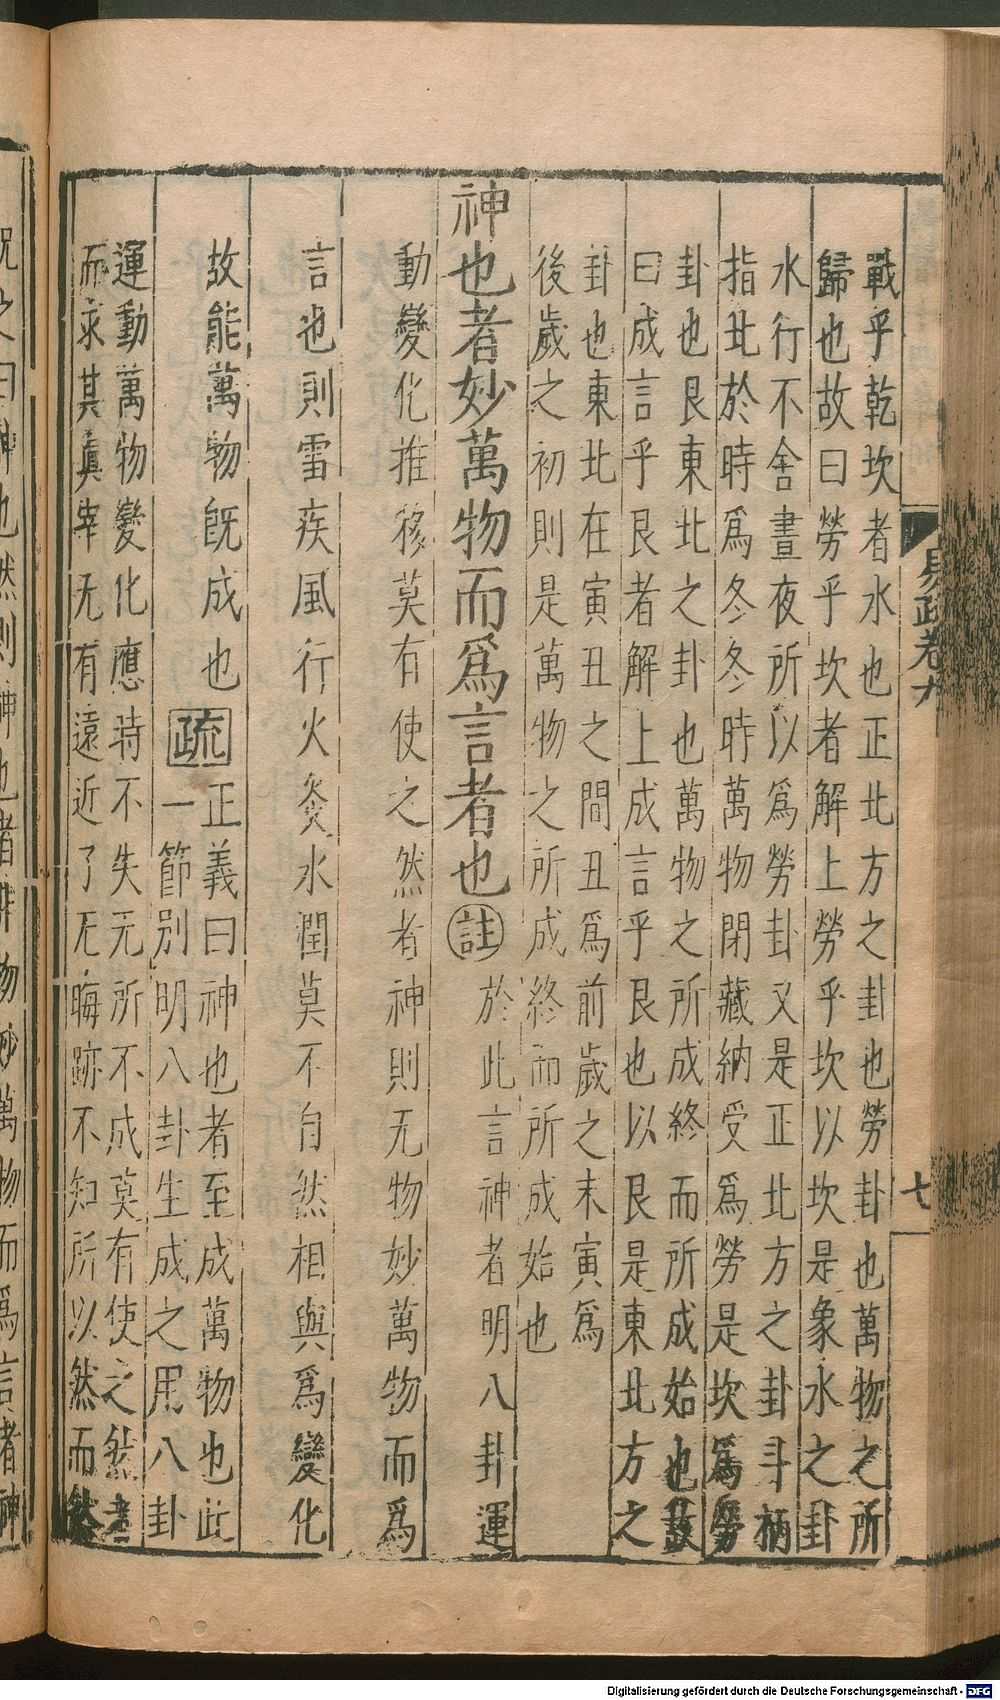 易疏卷九
七
戰乎乾坎者水也正北方之卦也勞卦也萬物之所
歸也故曰勞乎坎者解上勞乎坎以坎是象水之卦
水行不舍晝夜所以爲勞卦又是正北方之卦斗柄
指北於時爲冬冬時萬物閉藏納受爲勞是坎爲勞
卦也艮東北之卦也萬物之所成終而所成始也故
曰成言乎艮者解上成言乎艮也以艮是東北方之
卦也東北在寅丑之間丑爲前歲之末寅爲
後歲之初則是萬物之所成終而所成始也
神也者妙萬物而爲言者也註於此言神者明八卦運
動變化推移莫有使之然者神則无物妙萬物而爲
言也則雷疾風行火炎水潤莫不自然相與爲變化
故能萬物旣成也疏正義曰神也者至成萬物也此
一節別明八卦生成之用八卦
運動萬物變化應時不失无所不成莫有使之然者
而求其眞宰无有遠近了无晦跡不知所以然而然
況之曰神也然則神也者非物妙萬物而爲言者神
Digitalisierung gefördert durch die Deutsche Forschungsgemeinschaft - DFG